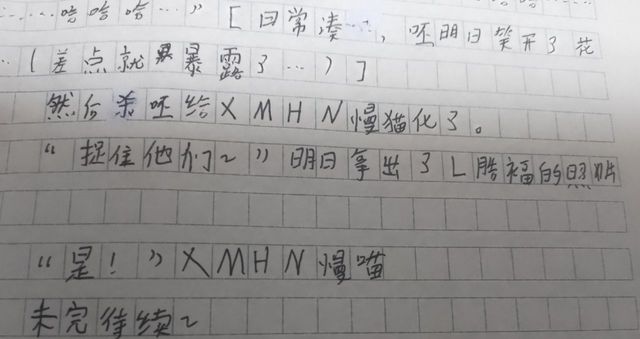 ……哈哈哈…”[日常凑…，呸明日笑开了花
…(差点就暴露了…)]
然后杀呸给XMHN慢猫化了。
“捉住他们~”明日拿出了L皓福的照片
“是！”XMHN慢喵
未完待续~